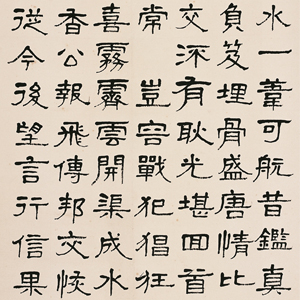 水一葦可航昔鑑真
負笈埋骨盛唐情比
交深有耿光堪回首
常 豈容戰犯猖狂
喜霧霽雲開渠成水
香公報飛傳邦交恢
從今後望言行信果